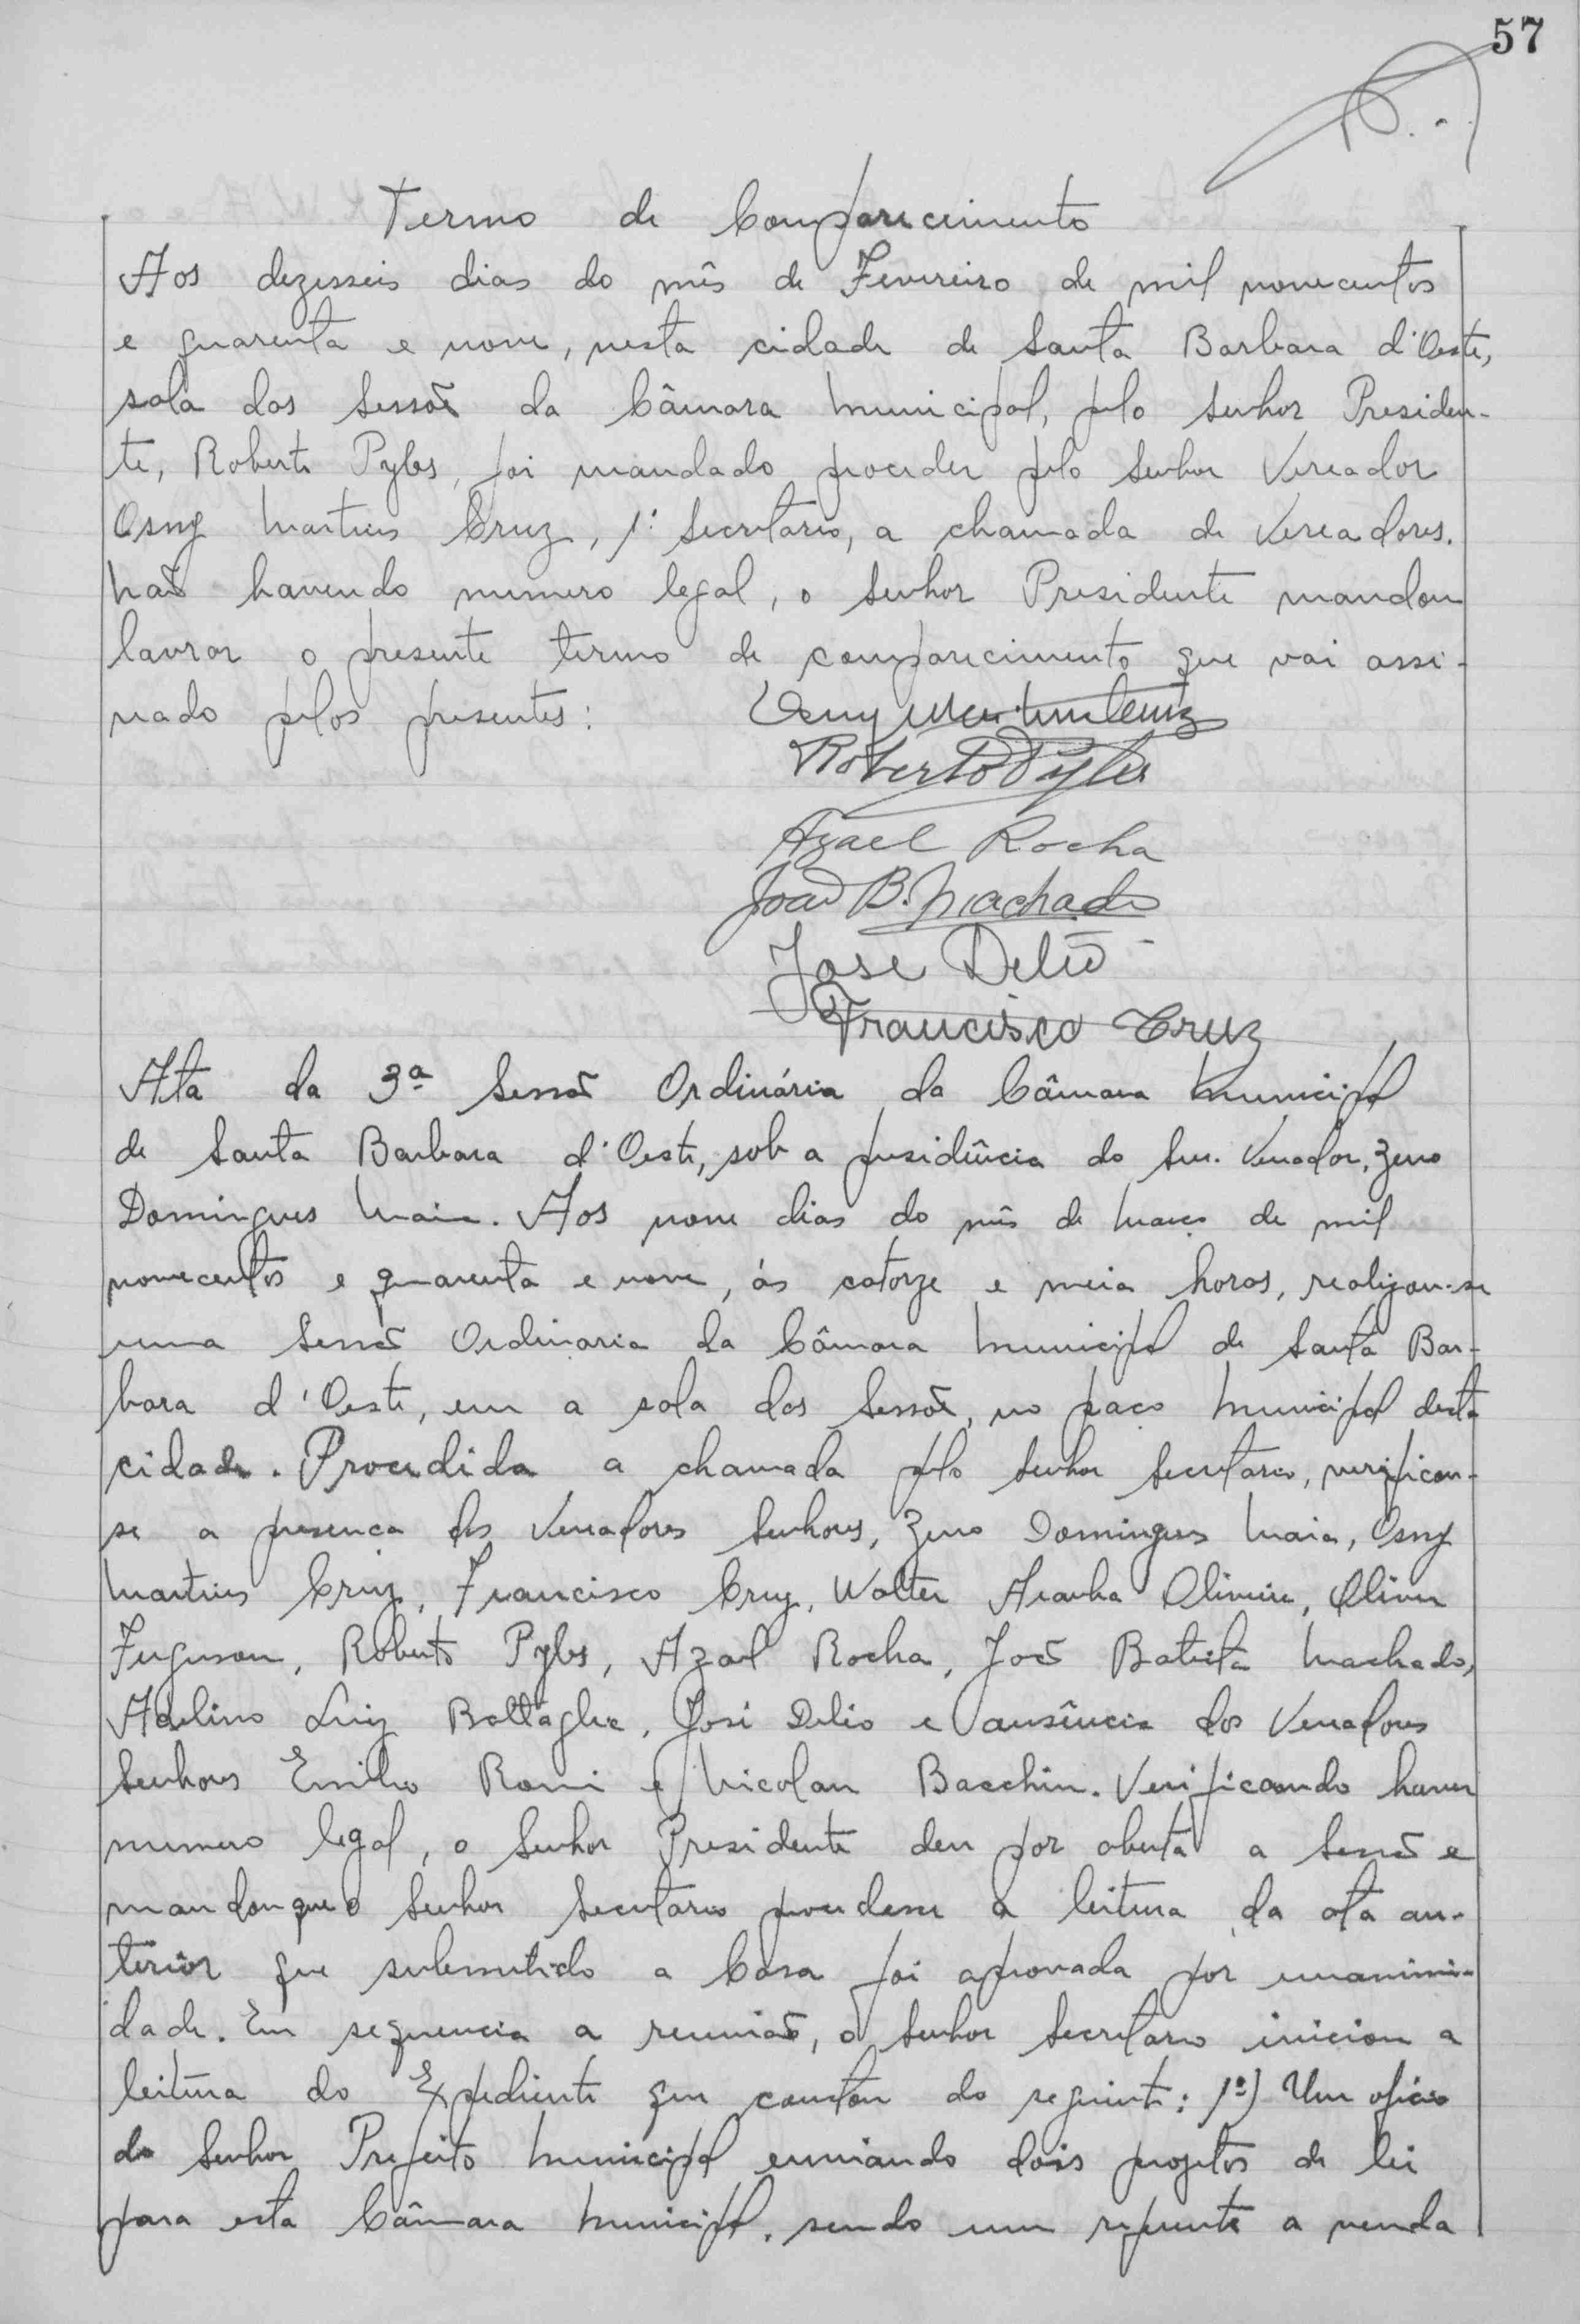 57
Termo de Comparecimento
Aos dezesseis dias do mês de Fevereiro de mil novecentos
e quarenta e nove, nesta cidade de Santa Barbara d'Oeste,
sala das Sessões da Câmara Municipal, pelo Senhor Presiden-
te, Roberto Pyles, foi mandado proceder pelo Senhor Vereador
Osny Martins Cruz, 1º Secretario, a chamada de Vereadores.
Não havendo numero legal, o Senhor Presidente mandou
lavrar o presente termo de comparecimento que vai assi-
nado pelos presentes: Osny Martins Cruz
Roberto Pyles
Azael Rocha
João B. Machado
José Delio
Francisco Cruz
Ata da 3ª Sessão Ordinária da Câmara Municipal
de Santa Barbara d'Oeste, sob a presidência do Snr. Vereador, Zeno
Domingues Maia. Aos nove dias do mês de Março de mil
novecentos e quarenta e nove, ás catorze e meia horas, realizou-se
uma Sessão Ordinaria da Câmara Municipal de Santa Bar-
bara d'Oeste, em a sala das Sessões, no paço Municipal desta
cidade. Procedida a chamada pelo Senhor Secretario, verificou-
se a presença dos Vereadores Senhores, Zeno Domingues Maia, Osny
Martins Cruz, Francisco Cruz, Walter Aranha Oliveira, Oliver
Ferguson, Roberto Pyles, Azael Rocha, João Batista Machado,
Adelino Luiz Battaglia, José Delio e ausência dos Vereadores
Senhores Emilio Romi e Nicolau Bacchin. Verificando haver
numero legal, o Senhor Presidente deu por aberta a Sessão e
mandou que o Senhor Secretario procedesse a leitura da ata an-
terior que submetido a Casa foi aprovada por unanimi-
dade. Em sequencia a reunião, o Senhor Secretario iniciou a
leitura do Expediente que constou do seguinte: 1º) Um oficio
do Senhor Prefeito Municipal enviando dois projetos de lei
para esta Câmara Municipal, sendo um referente a venda